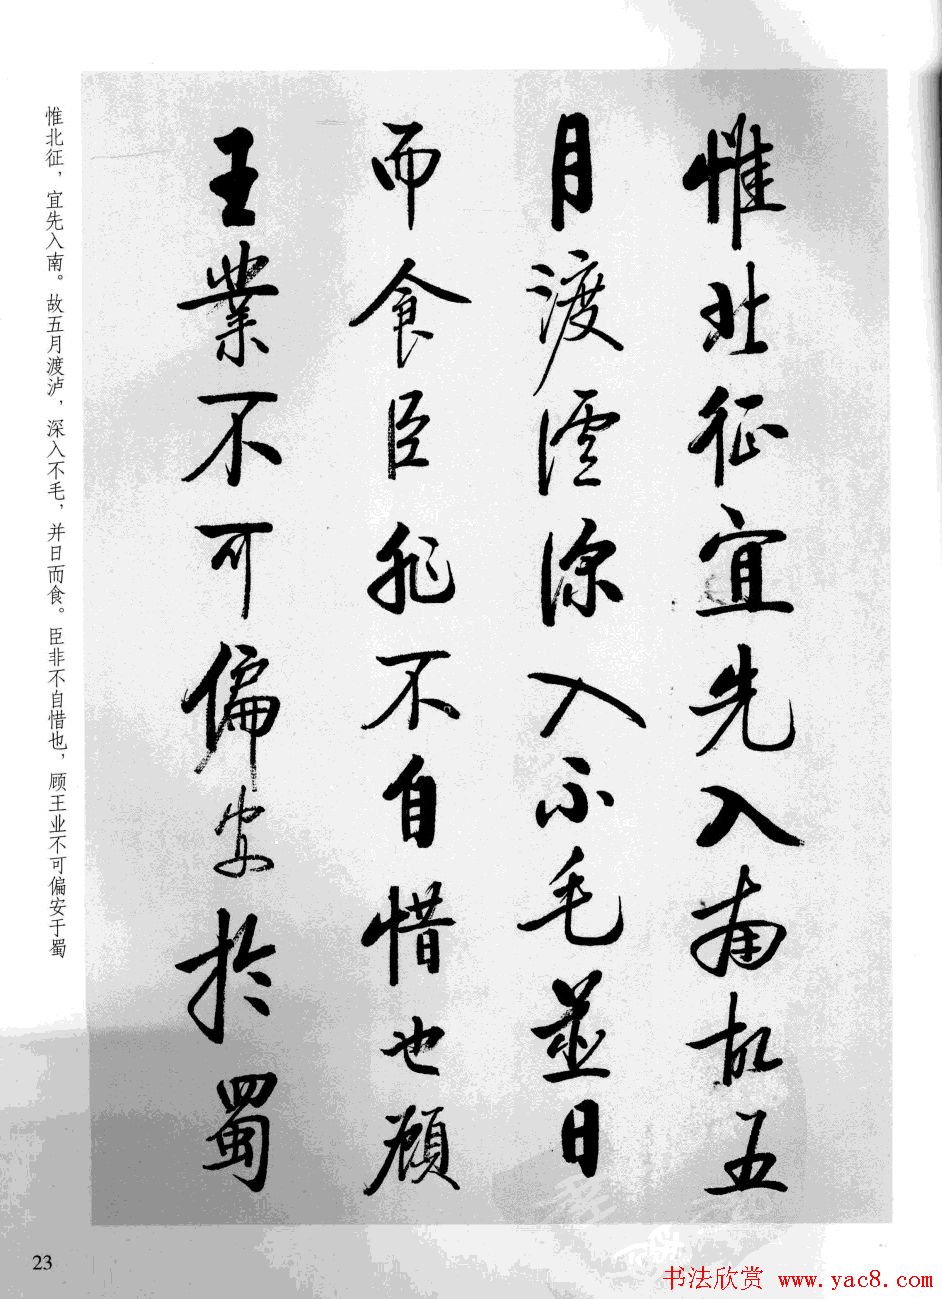 惟北征宜先入南故五
月渡瀘深入不毛並日
而食臣非不自惜也顧
王業不可偏安於蜀
惟北征，宜先入南。故五月渡泸，深入不毛，并日而食。臣非不自惜也，顾王业不可偏安于蜀
23
书法欣赏 www.yac8.com